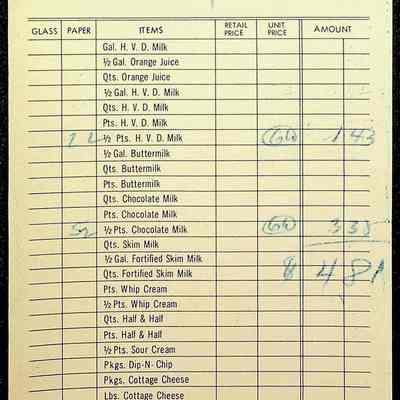 GLASS PAPER ITEMS RETAIL PRICE UNIT PRICE AMOUNT
Gal. H. V. D. Milk
½ Gal. Orange Juice
Qts. Orange Juice
½ Gal. H. V. D. Milk
Qts. H. V. D. Milk
Pts. H. V. D. Milk
½ Pts. H. V. D. Milk 60 143
½ Gal. Buttermilk
Qts. Buttermilk
Pts. Buttermilk
Qts. Chocolate Milk
Pts. Chocolate Milk
½ Pts. Chocolate Milk 60 338
Qts. Skim Milk
½ Gal. Fortified Skim Milk
Qts. Fortified Skim Milk 8 481
Pts. Whip Cream
½ Pts. Whip Cream
Qts. Half & Half
Pts. Half & Half
½ Pts. Sour Cream
Pkgs. Dip-N- Chip
Pkgs. Cottage Cheese
Lbs. Cottage Cheese